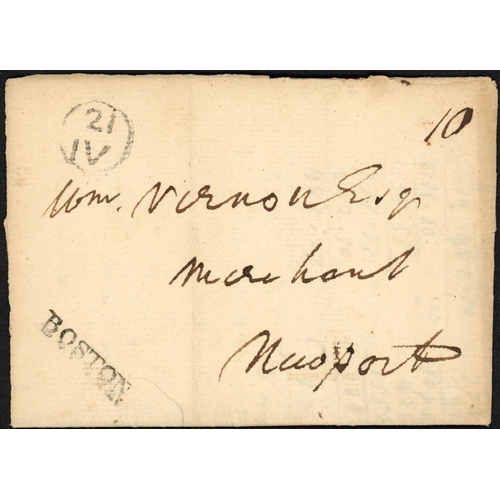 21
IV
10
Wm. Vernon Esqr
Merchant
Newport
BOSTON